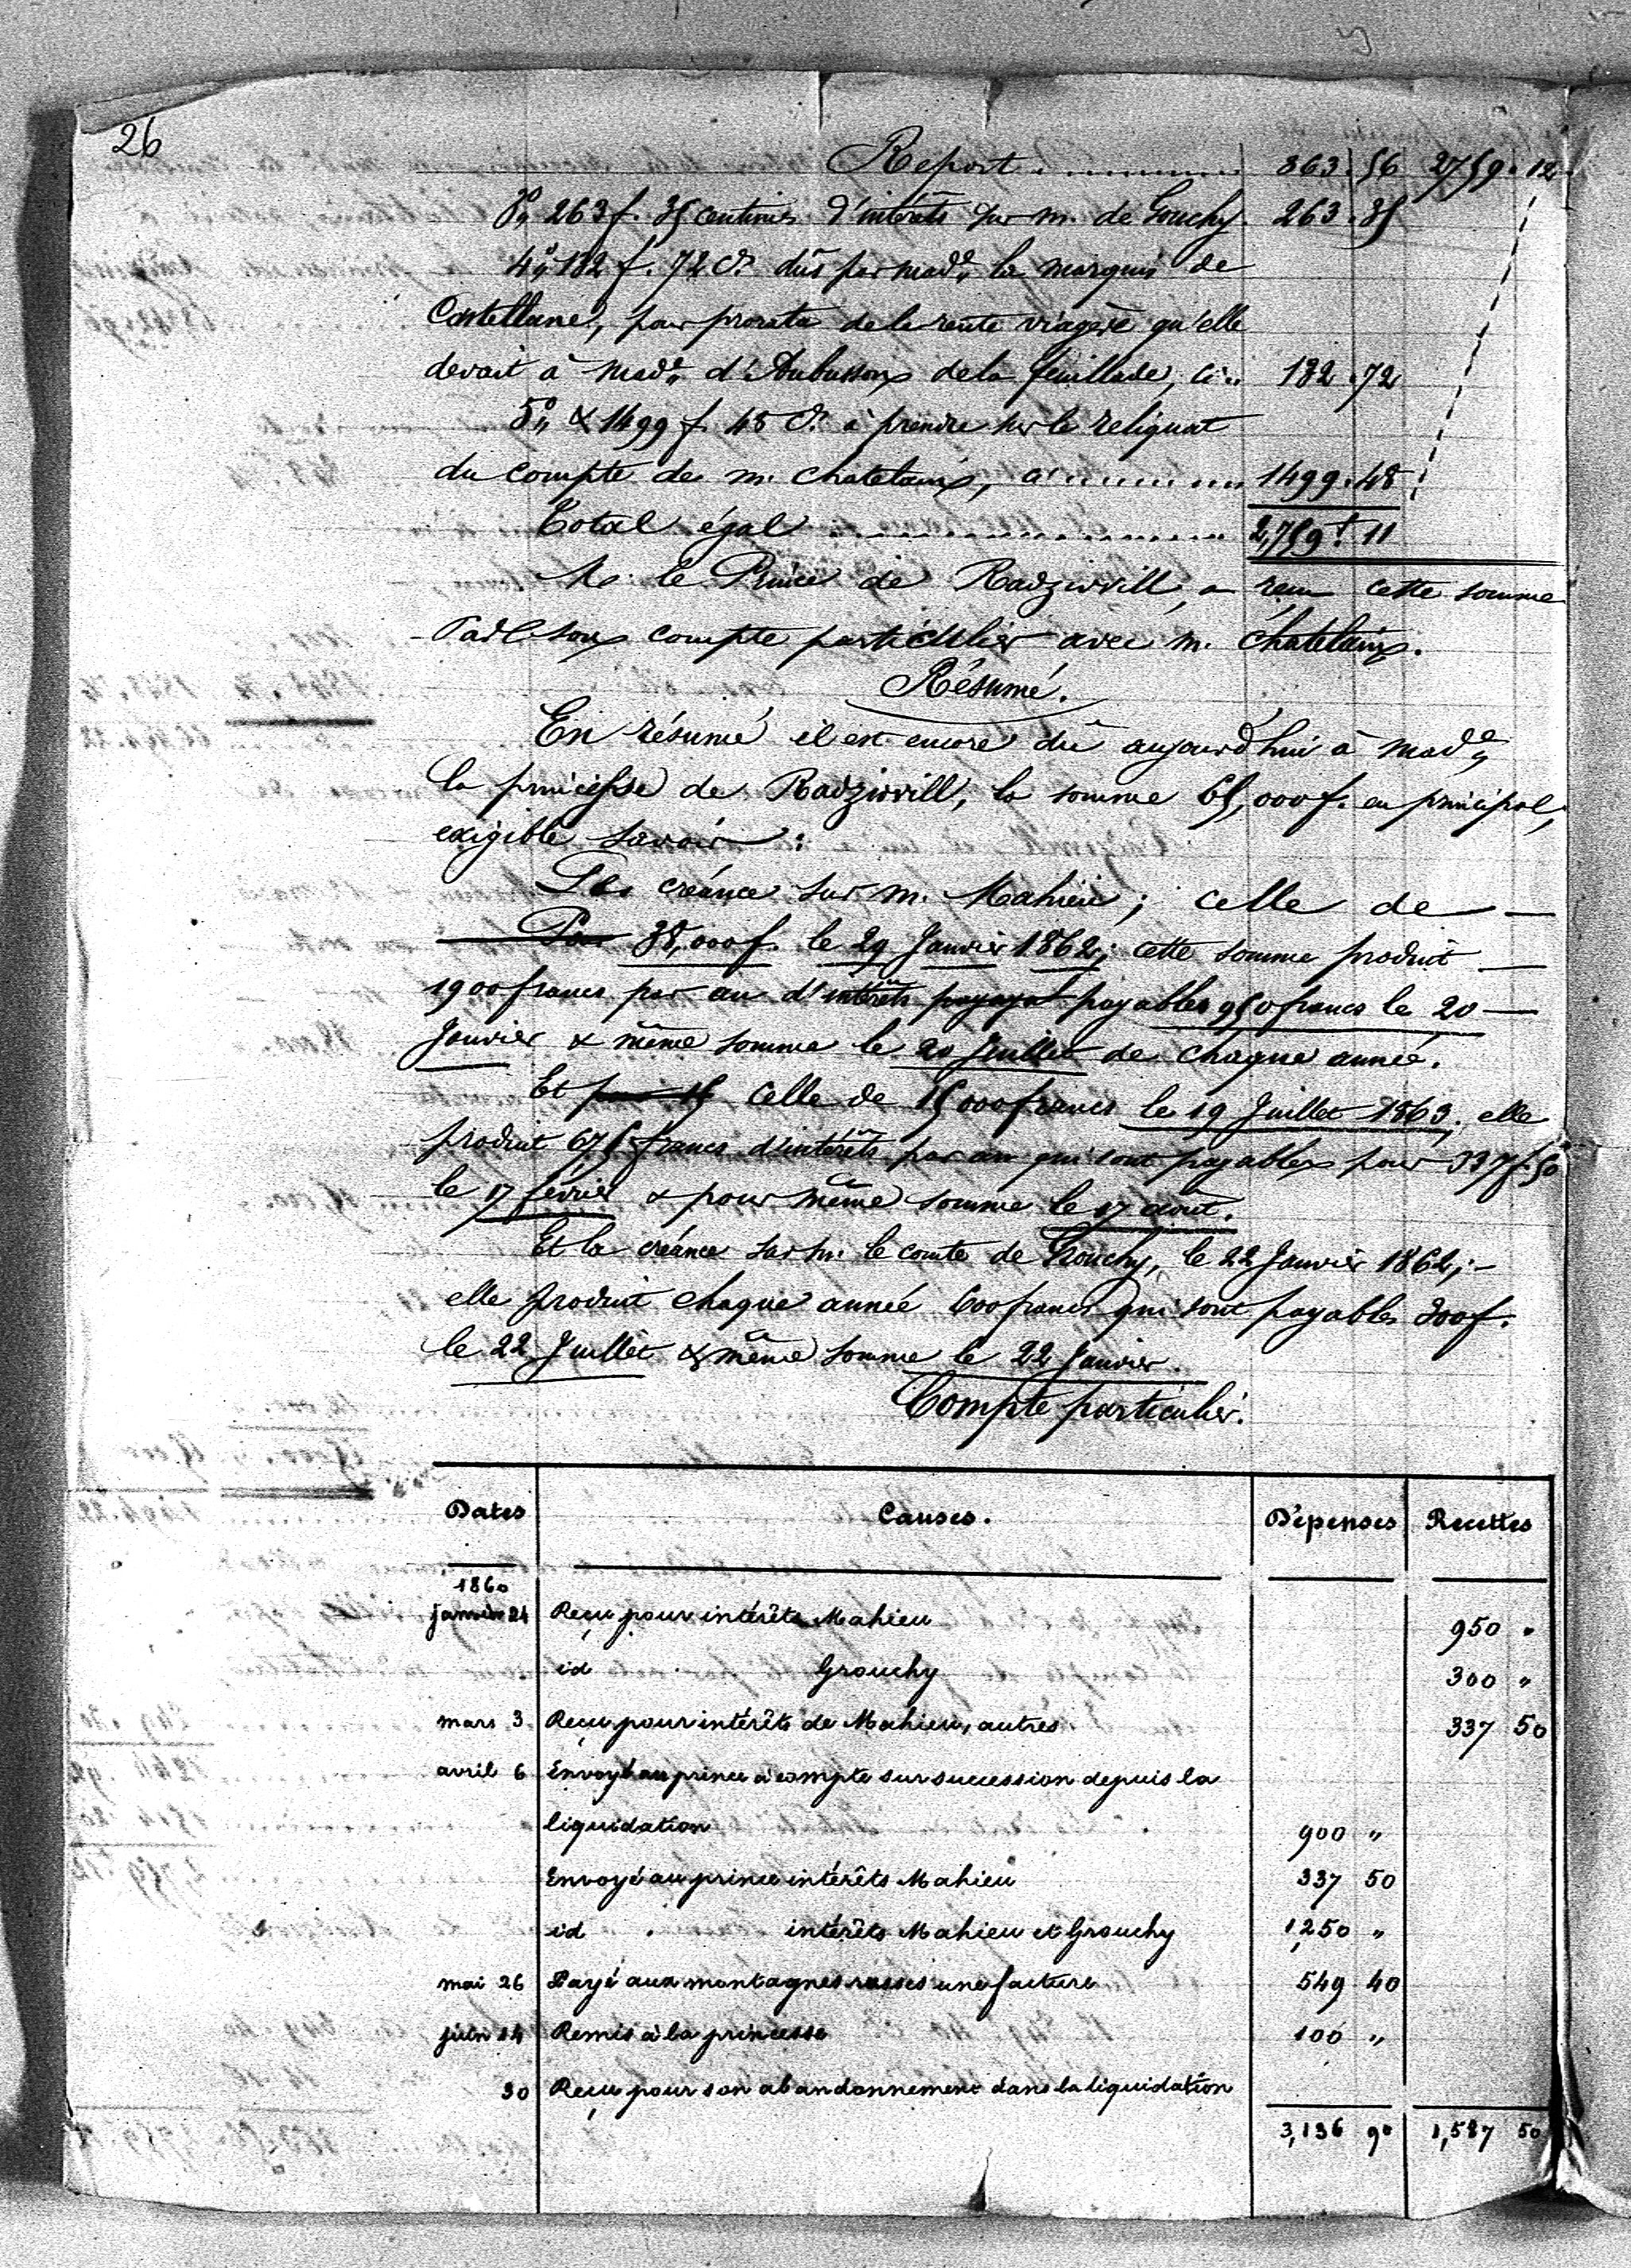 26
Report ............ 863.56 2759.12
3° 263 f. 35 centimes d'intérêts sur m. de Grouchy 263.35
4° 132 f. 72 c. dûs par mad. la marquis de
Castellane, pour prorata de la rente viagère qu'elle
devait à mad. d'Aubusson de la feuillade, ci.. 132.72
5° & 1499 f. 48 c. à prendre sur le reliquat
du compte de m. Chatelain, ci ............ 1499.48
Total égal ............ 2,759 f 11
M. le Prince de Radziwill, a reçu cette somme
son compte particulier avec m. Chatelain.
Résumé.
En résumé il est encore dû aujourd'hui à mad.
la princesse de Radziwill, la somme 65,000 f. en principal,
exigible savoir :
créance sur m. Mahieu ; celle de —
38,000 f. le 29 Janvier 1862; cette somme produit —
1900 francs par an d'intérêts payables 950 francs le 20 —
Janvier & même somme le 20 Juillet de chaque année.
Et pour 15 celle de 15000 francs le 19 Juillet 1863; elle
produit 675 francs d'intérêts par an qui sont payables pour 337 f. 50
le 17 février & pour même somme le 17 août.
Et la créance sur m. le comte de Grouchy, le 22 Janvier 1862; -
elle produit chaque année 600 francs qui sont payables 300 f.
le 22 Juillet & même somme le 22 Janvier.
Compte particulier.
Dates Causes. Dépenses Recettes
1860
janvier 24 Reçu pour intérêts Mahieu 950 "
id Grouchy 300 "
mars 3 Reçu pour intérêts de Mahieu, autres 337 50
avril 6 Envoyé au prince à compte sur succession depuis la
liquidation 900 "
Envoyé au prince intérêts Mahieu 337 50
id intérêts Mahieu et Grouchy 1,250 "
mai 26 Payé aux montagnes russes une facture 549 40
juin 14 Remis à la princesse 100 "
30 Reçu pour son abandonnement dans la liquidation
3,136 90 1,587 50